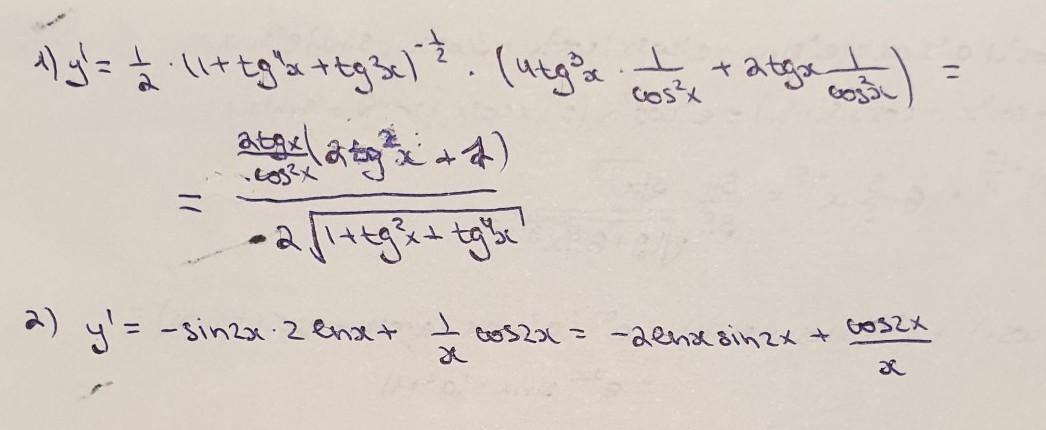 1) y' = 1/2 · (1 + tg⁴x + tg²x)^(-1/2) · (4tg³x · 1/cos²x + 2tgx 1/cos²x) =
= (2tgx/cos²x (2tg²x + 1)) / (2√(1 + tg²x + tg⁴x))
2) y' = -sin2x · 2 lnx + 1/x cos2x = -2lnx sin2x + cos2x/x